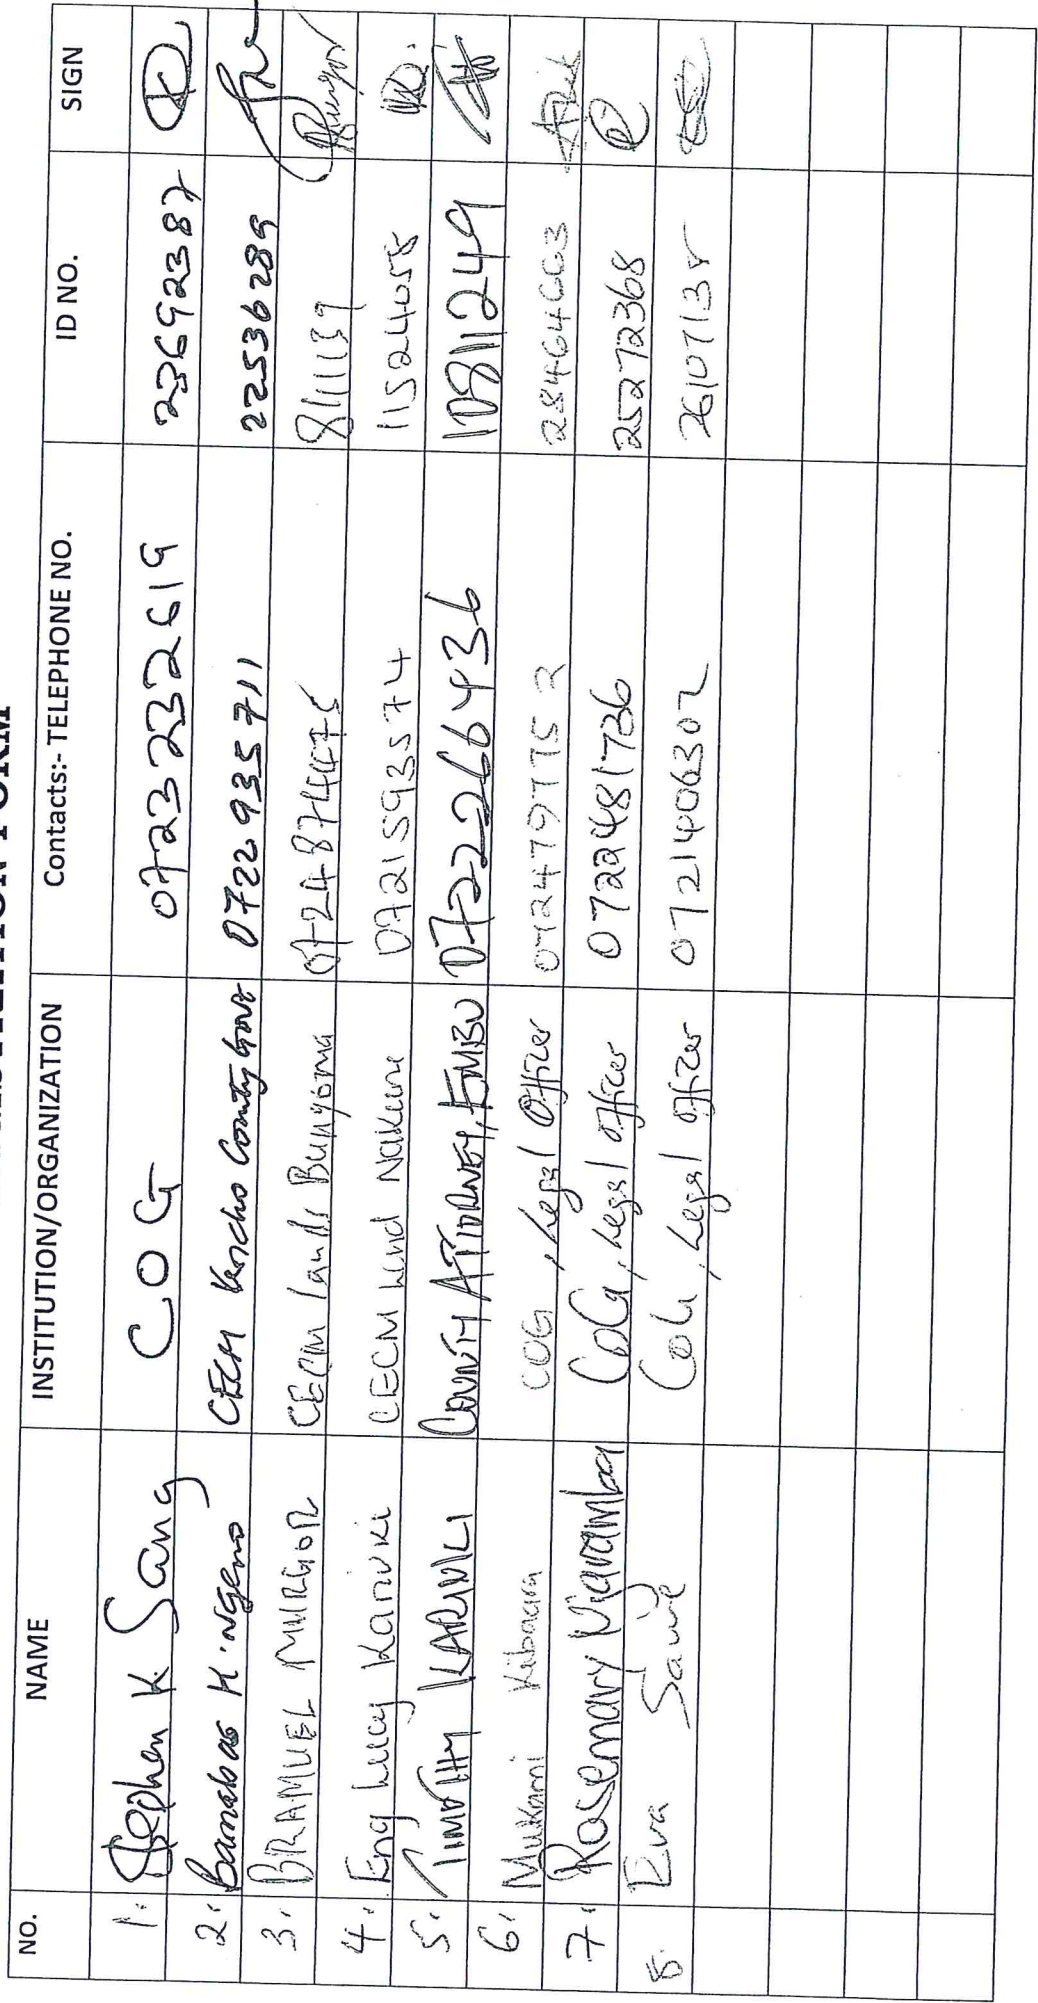 REGISTRATION FORM
NO. NAME INSTITUTION/ORGANIZATION Contacts:- TELEPHONE NO. ID NO. SIGN
1. Stephen K. Sang COG 0723232619 23692387
2. Barnabas K. Ngeno CECM Kericho County Govt 0722935711 22536289
3. BRAMUEL MURGOR CECM Lands Bungoma 8111139
4. Eng Lucy Kariuki CECM Land Nakuru 0721593574 11524058
5. TIMOTHY KARIUKI COUNTY ATTORNEY, EMBU 0722266436 10811249
6. Mukami Kibaara COG, Legal Officer 0724797752 28464663
7. Rosemary Njaramba CoG, Legal Officer 0722481736 25272368
8. Eva Sawe CoG, Legal Officer 0721406302 26107138